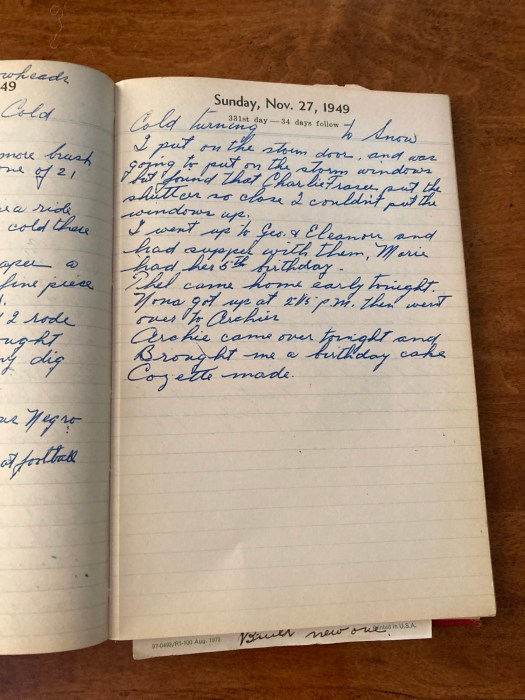 owheads
49
Cold
more brush
one of 21
a ride
cold these
a
fine piece
2 rode
ught
dig
Negro
at football
Sunday, Nov. 27, 1949
331st day—34 days follow
Cold turning to Snow
I put on the storm door, and was
going to put on the storm windows
but found that Charlie Fraser put the
shutters so close I couldn't put the
windows up.
I went up to Geo. & Eleanor and
had supper with them, Marie
had her 5th birthday.
Thel came home early tonight.
Nona got up at 2 P.M. then went
over to Archies
Archie came over tonight and
Brought me a birthday cake
Cozette made.
Printed in U.S.A.
new one.